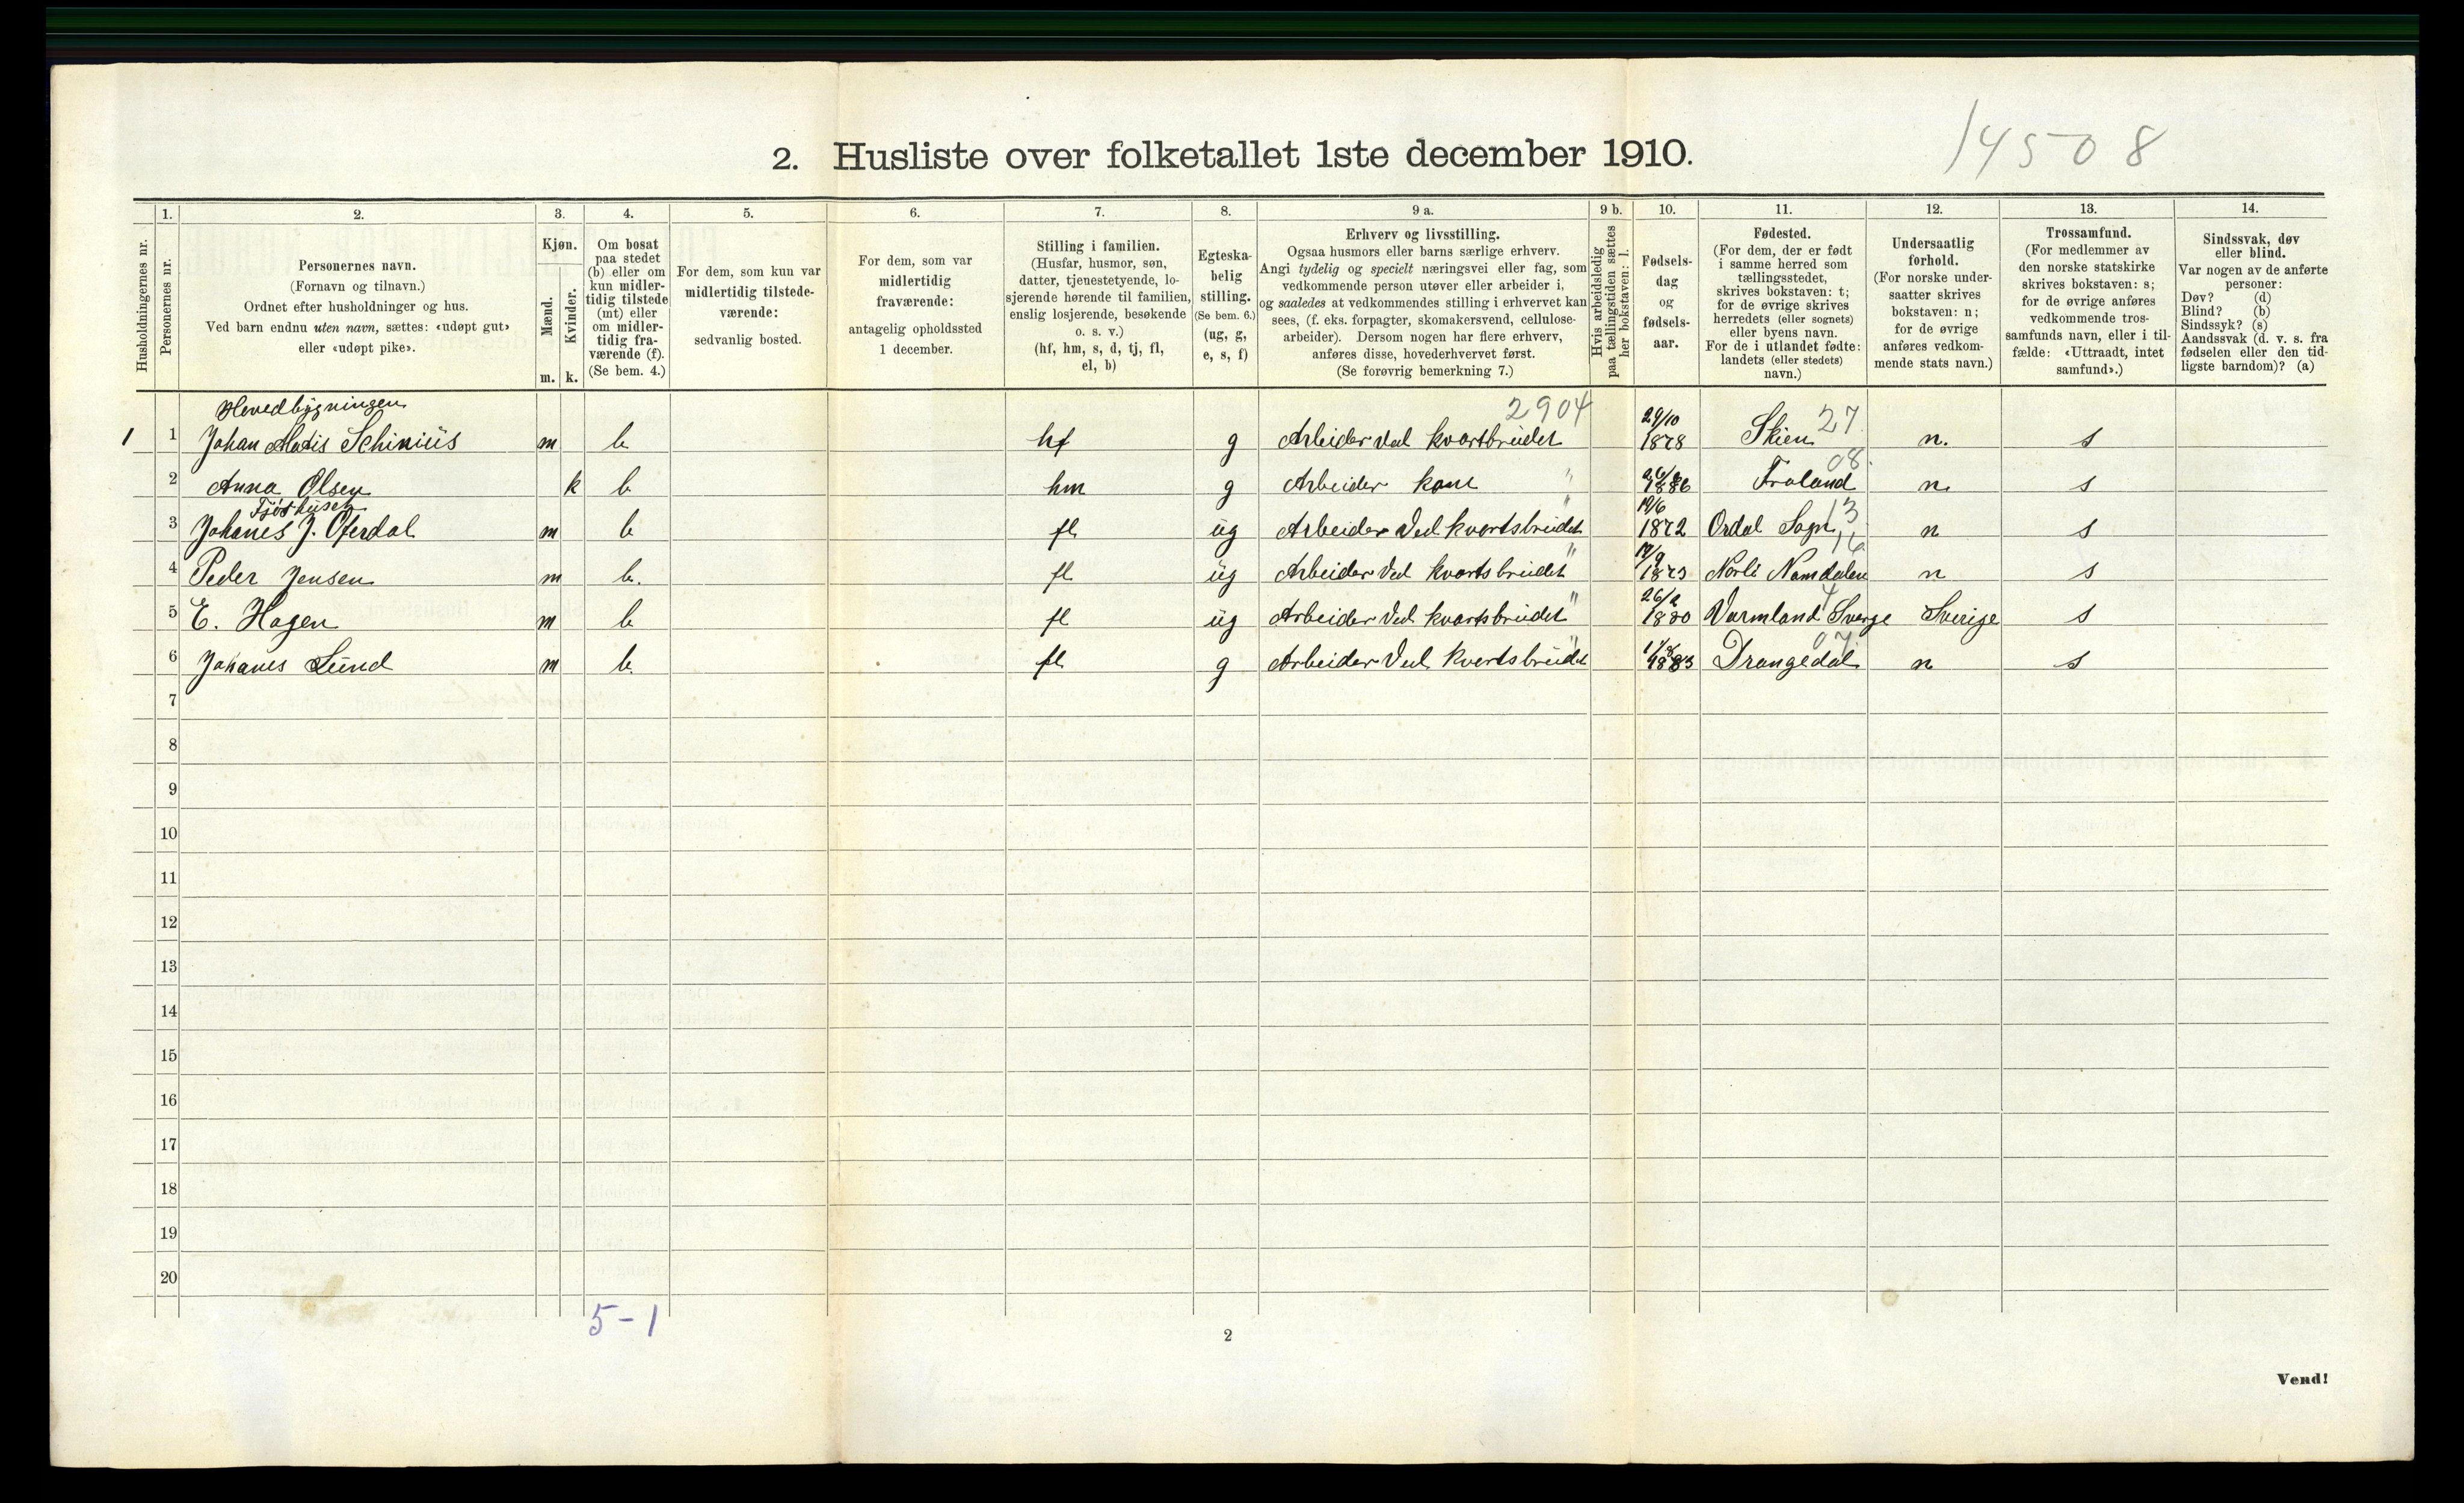 14508
2. Husliste over folketallet 1ste december 1910.
Husholdningernes nr.
1.
Personernes nr.
2.
Personernes navn.
(Fornavn og tilnavn.)
Ordnet efter husholdninger og hus.
Ved barn endnu uten navn, sættes: «udøpt gut»
eller «udøpt pike».
3.
Kjøn.
Mænd.
Kvinder.
m. k.
4.
Om bosat
paa stedet
(b) eller om
kun midler-
tidig tilstede
(mt) eller
om midler-
tidig fra-
værende (f).
(Se bem. 4.)
5.
For dem, som kun var
midlertidig tilstede-
værende:
sedvanlig bosted.
6.
For dem, som var
midlertidig
fraværende:
antagelig opholdssted
1 december.
7.
Stilling i familien.
(Husfar, husmor, søn,
datter, tjenestetyende, lo-
sjerende hørende til familien,
enslig losjerende, besøkende
o. s. v.)
(hf, hm, s, d, tj, fl,
el, b)
8.
Egteska-
belig
stilling.
(Se bem. 6.)
(ug, g,
e, s, f)
9 a.
Erhverv og livsstilling.
Ogsaa husmors eller barns særlige erhverv.
Angi tydelig og specielt næringsvei eller fag, som
vedkommende person utøver eller arbeider i,
og saaledes at vedkommendes stilling i erhvervet kan
sees, (f. eks. forpagter, skomakersvend, cellulose-
arbeider). Dersom nogen har flere erhverv,
anføres disse, hovederhvervet først.
(Se forøvrig bemerkning 7.)
9 b.
Hvis arbeidsledig
paa tællingstiden sættes
her bokstaven: l.
10.
Fødsels-
dag
og
fødsels-
aar.
11.
Fødested.
(For dem, der er født
i samme herred som
tællingsstedet,
skrives bokstaven: t;
for de øvrige skrives
herredets (eller sognets)
eller byens navn.
For de i utlandet fødte:
landets (eller stedets)
navn.)
12.
Undersaatlig
forhold.
(For norske under-
saatter skrives
bokstaven: n;
for de øvrige
anføres vedkom-
mende stats navn.)
13.
Trossamfund.
(For medlemmer av
den norske statskirke
skrives bokstaven: s;
for de øvrige anføres
vedkommende tros-
samfunds navn, eller i til-
fælde: «Uttraadt, intet
samfund».)
14.
Sindssvak, døv
eller blind.
Var nogen av de anførte
personer:
Døv? (d)
Blind? (b)
Sindssyk? (s)
Aandssvak (d. v. s. fra
fødselen eller den tid-
ligste barndom)? (a)
Hovedbygningen 2904 29/10 27
1 1 Johan Schinius m b hf g Arbeider ved kvartbrudet 1878 Skien n. s
08
2 Anna Olsen k b hm g Arbeider kone " 1886 Froland n. s
Fjøshusen 19/6 13
3 Johanes J. Oferdal m b fl ug Arbeider Ved kvartsbrudet 1872 Ordal Sogn n s
16
4 Peder Jensen m b. fl ug Arbeider Ved kvartsbrudet 1873 Norli Namdalen n s
26/2 4
5 E. Hagen m b fl ug Arbeider Ved kvartsbrudet 1880 Varmland Sverge Sverige s
07
6 Johanes Lund m b. fl g Arbeider Ved kvartsbrudet 1883 Drangedal n s
7
8
9
10
11
12
13
14
15
16
17
18
19
20
5-1
2
Vend!